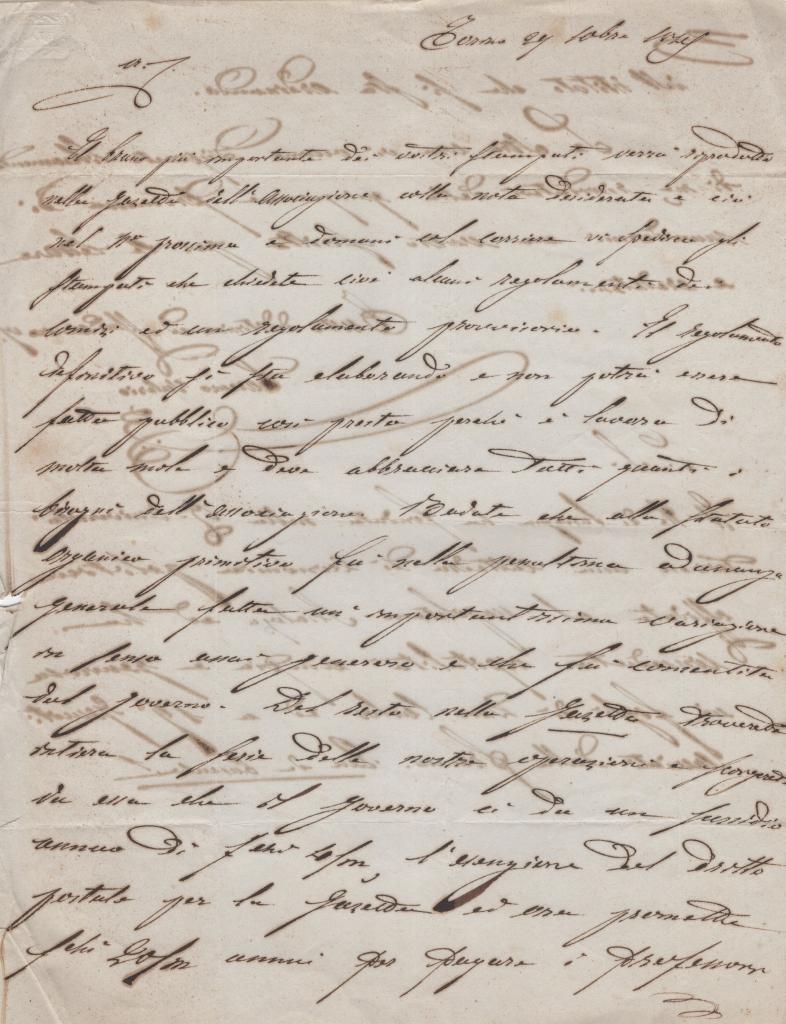 Torino 29 8bre 1845
Il brano più importante dei vostri stampati verrà riprodotto
nella Gazzetta dell'Associazione colla nota desiderata e ciò
nel N° prossimo e domani col corriere vi spedirò gli
stampati che chiedete cioè alcuni regolamenti dei
Comizi ed un regolamento provvisorio. Il regolamento
definitivo si sta elaborando e non potrà essere
fatto pubblico così presto perchè è lavoro di
molta mole e deve abbracciare tutti quanti i
bisogni dell'associazione. Badate che allo Statuto
organico primitivo fu nella penultima adunanza
generale fatta un' importantissima variazione
in senso assai generoso e che fu consentita
dal governo. Del resto nella Gazzetta troverete
intiera la serie delle nostre operazioni e scorgerete
da essa che il Governo ci dà un sussidio
annuo di fchi 4/m, l'esenzione del dritto
postale per la Gazzetta ed ora promette
fchi 20/m annui per pagare i professori